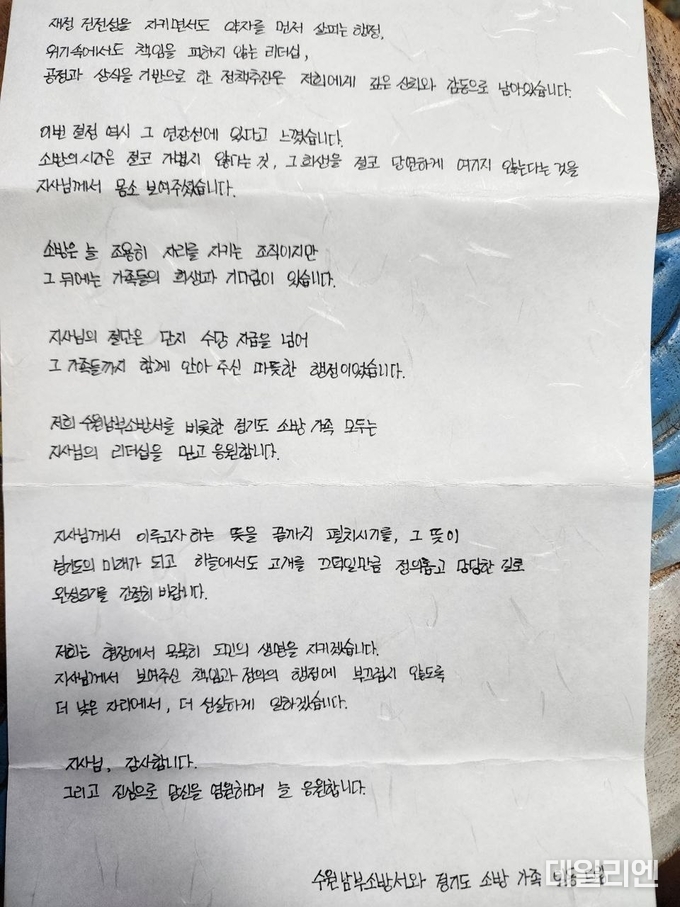 재정 건전성을 지키면서도 약자를 먼저 살피는 행정,
위기속에서도 책임을 피하지 않는 리더십,
공정과 상식을 기반으로 한 정책추진은 저희에게 깊은 신뢰와 감동으로 남아있습니다.
이번 결정 역시 그 연장선에 있다고 느꼈습니다.
소방의 시간은 결코 가볍지 않다는 것, 그 희생을 결코 당연하게 여기지 않는다는 것을
지사님께서 몸소 보여주셨습니다.
소방은 늘 조용히 자리를 지키는 조직이지만
그 뒤에는 가족들의 희생과 기다림이 있습니다.
지사님의 결단은 단지 수당 지급을 넘어
그 가족들까지 함께 안아 주신 따뜻한 행정이었습니다.
저희 수원남부소방서를 비롯한 경기도 소방 가족 모두는
지사님의 리더십을 믿고 응원합니다.
지사님께서 이루고자 하는 뜻을 끝까지 펼치시기를, 그 뜻이
경기도의 미래가 되고 하늘에서도 고개를 끄덕일만큼 정의롭고 당당한 길로
완성되기를 간절히 바랍니다.
저희는 현장에서 묵묵히 도민의 생명을 지키겠습니다.
지사님께서 보여주신 책임과 정의의 행정에 부끄럽지 않도록
더 낮은 자리에서, 더 성실하게 일하겠습니다.
지사님, 감사합니다.
그리고 진심으로 당신을 염원하며 늘 응원합니다.
수원남부소방서와 경기도 소방 가족
데일리엔